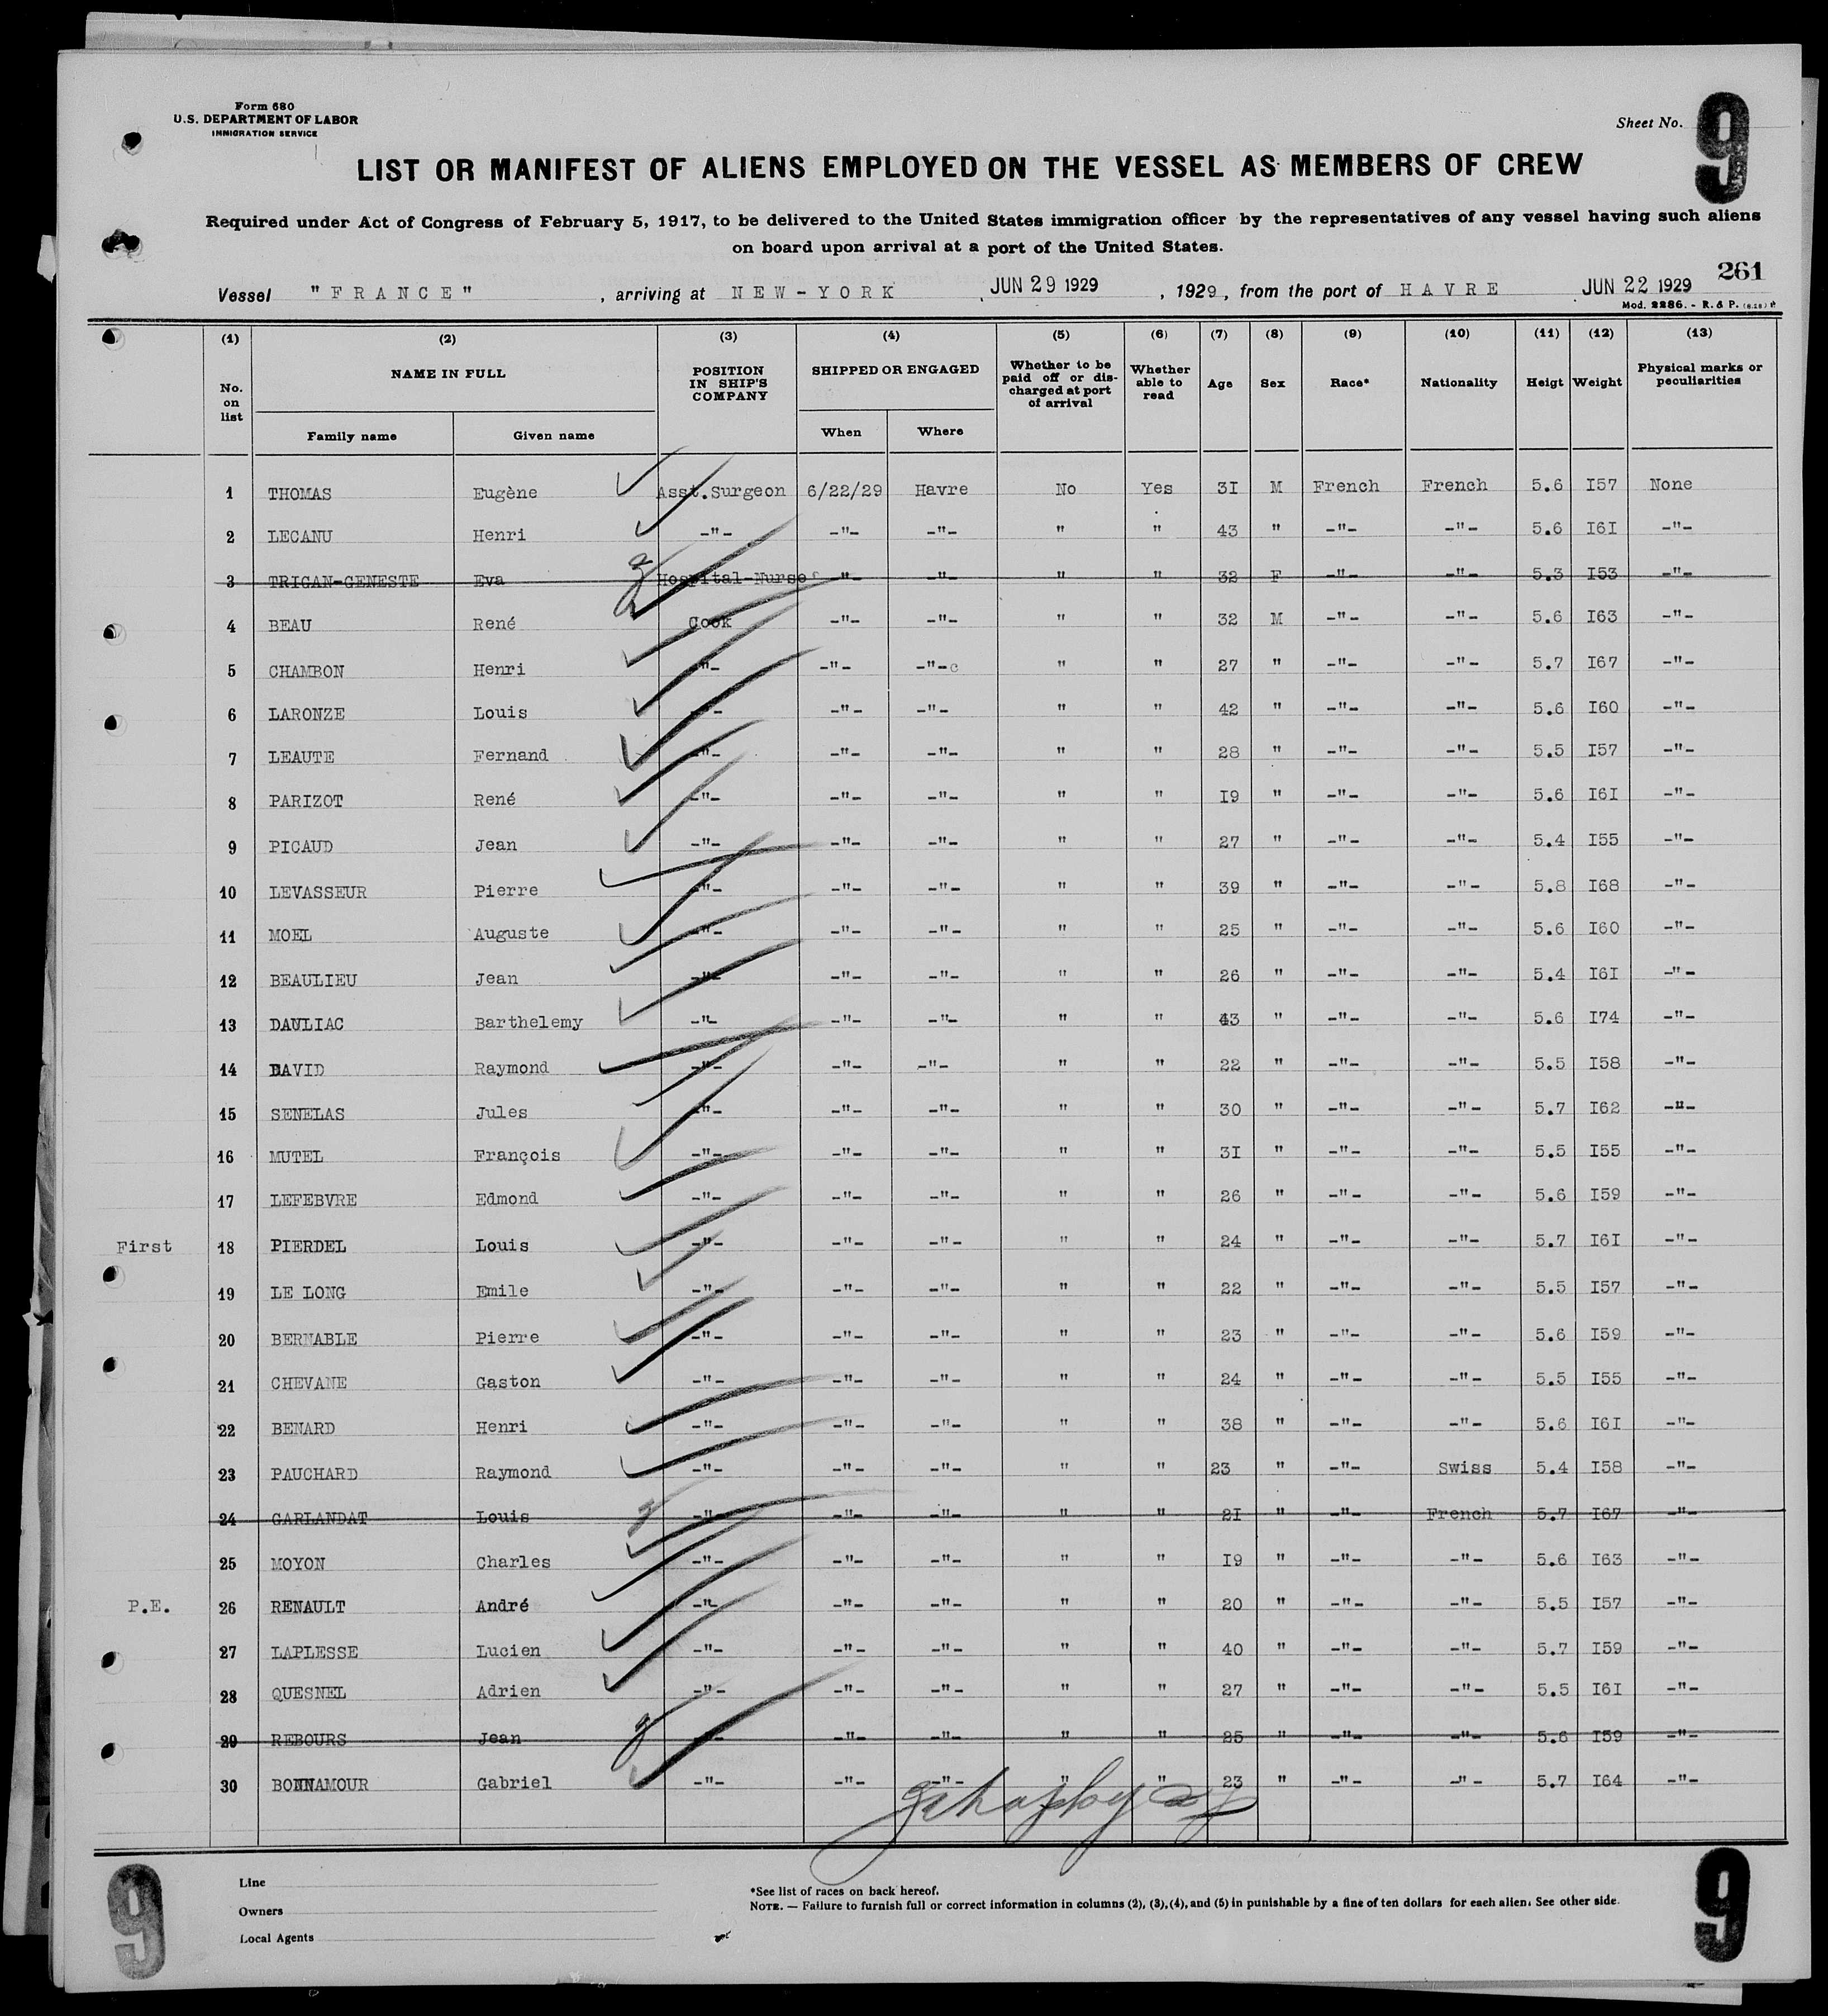 Form 680
U.S. DEPARTMENT OF LABOR
IMMIGRATION SERVICE
Sheet No. 9
LIST OR MANIFEST OF ALIENS EMPLOYED ON THE VESSEL AS MEMBERS OF CREW
Required under Act of Congress of February 5, 1917, to be delivered to the United States immigration officer by the representatives of any vessel having such aliens
on board upon arrival at a port of the United States.
261
Vessel "FRANCE" , arriving at NEW-YORK , JUN 29 1929 , 1929, from the port of HAVRE JUN 22 1929
Mod. 2286. - R. & P.
(1) (2) (3) (4) (5) (6) (7) (8) (9) (10) (11) (12) (13)
No. on list NAME IN FULL Family name Given name POSITION IN SHIP'S COMPANY SHIPPED OR ENGAGED When Where Whether to be paid off or discharged at port of arrival Whether able to read Age Sex Race* Nationality Heigt Weight Physical marks or peculiarities
1 THOMAS Eugène Asst.Surgeon 6/22/29 Havre No Yes 3I M French French 5.6 I57 None
2 LECANU Henri -"- -"- -"- " " 43 " -"- -"- 5.6 I6I -"-
3 TRICAN-GENESTE Eva Hospital-Nurse -"- -"- " " 32 F -"- -"- 5.3 I53 -"-
4 BEAU René Cook -"- -"- " " 32 M -"- -"- 5.6 I63 -"-
5 CHAMBON Henri -"- -"- -"-c " " 27 " -"- -"- 5.7 I67 -"-
6 LARONZE Louis -"- -"- -"- " " 42 " -"- -"- 5.6 I60 -"-
7 LEAUTE Fernand -"- -"- -"- " " 28 " -"- -"- 5.5 I57 -"-
8 PARIZOT René -"- -"- -"- " " I9 " -"- -"- 5.6 I6I -"-
9 PICAUD Jean -"- -"- -"- " " 27 " -"- -"- 5.4 I55 -"-
10 LEVASSEUR Pierre -"- -"- -"- " " 39 " -"- -"- 5.8 I68 -"-
11 MOEL Auguste -"- -"- -"- " " 25 " -"- -"- 5.6 I60 -"-
12 BEAULIEU Jean -"- -"- -"- " " 26 " -"- -"- 5.4 I6I -"-
13 DAULIAC Barthelemy -"- -"- -"- " " 43 " -"- -"- 5.6 I74 -"-
14 DAVID Raymond -"- -"- -"- " " 22 " -"- -"- 5.5 I58 -"-
15 SENELAS Jules -"- -"- -"- " " 30 " -"- -"- 5.7 I62 -"-
16 MUTEL François -"- -"- -"- " " 3I " -"- -"- 5.5 I55 -"-
17 LEFEBVRE Edmond -"- -"- -"- " " 26 " -"- -"- 5.6 I59 -"-
First 18 PIERDEL Louis -"- -"- -"- " " 24 " -"- -"- 5.7 I6I -"-
19 LE LONG Emile -"- -"- -"- " " 22 " -"- -"- 5.5 I57 -"-
20 BERNABLE Pierre -"- -"- -"- " " 23 " -"- -"- 5.6 I59 -"-
21 CHEVANE Gaston -"- -"- -"- " " 24 " -"- -"- 5.5 I55 -"-
22 BENARD Henri -"- -"- -"- " " 38 " -"- -"- 5.6 I6I -"-
23 PAUCHARD Raymond -"- -"- -"- " " 23 " -"- Swiss 5.4 I58 -"-
24 GARLANDAT Louis -"- -"- -"- " " 2I " -"- French 5.7 I67 -"-
25 MOYON Charles -"- -"- -"- " " I9 " -"- -"- 5.6 I63 -"-
P.E. 26 RENAULT André -"- -"- -"- " " 20 " -"- -"- 5.5 I57 -"-
27 LAPLESSE Lucien -"- -"- -"- " " 40 " -"- -"- 5.7 I59 -"-
28 QUESNEL Adrien -"- -"- -"- " " 27 " -"- -"- 5.5 I6I -"-
29 REBOURS Jean -"- -"- -"- " " 25 " -"- -"- 5.6 I59 -"-
30 BONNAMOUR Gabriel -"- -"- -"- " " 23 " -"- -"- 5.7 I64 -"-
Line
Owners
Local Agents
*See list of races on back hereof.
NOTE. — Failure to furnish full or correct information in columns (2), (3), (4), and (5) in punishable by a fine of ten dollars for each alien. See other side.
9
9